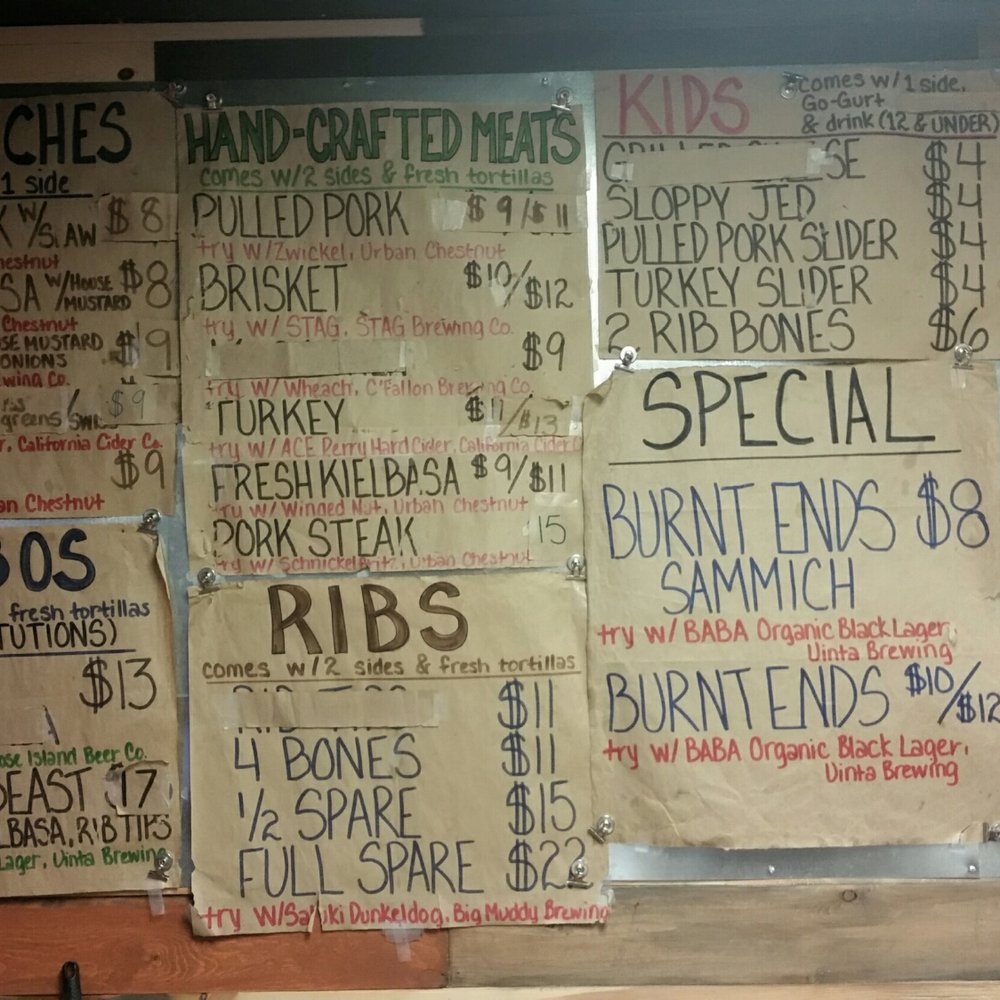 CHES
1 side
W/ SLAW $8
W/HOUSE MUSTARD $8
Chestnut
MUSTARD $9
ONIONS
greens/ $9
California Cider Co.
$9
Chestnut
fresh tortillas
$13
Island Beer Co.
17
RIB TIPS
Lager, Uinta Brewing
HAND-CRAFTED MEATS
comes w/2 sides & fresh tortillas
PULLED PORK $9/$11
try w/Zwickel, Urban Chestnut
BRISKET $10/$12
try w/ STAG, STAG Brewing Co.
$9
try w/ Wheach, O'Fallon Brewing Co.
TURKEY $11/$13
try w/ ACE Perry Hard Cider, California Cider
FRESH KIELBASA $9/$11
try w/ Winged Nut, Urban Chestnut
PORK STEAK 15
try w/ Schnickelfritz, Urban Chestnut
RIBS
comes w/2 sides & fresh tortillas
$11
4 BONES $11
1/2 SPARE $15
FULL SPARE $22
try w/ Dunkeldog, Big Muddy Brewing
KIDS
comes w/1 side,
Go-Gurt
& drink (12 & UNDER)
$4
SLOPPY JED $4
PULLED PORK SLIDER $4
TURKEY SLIDER $4
2 RIB BONES $6
SPECIAL
BURNT ENDS $8
SAMMICH
try w/ BABA Organic Black Lager,
Uinta Brewing
BURNT ENDS $10/$12
try w/ BABA Organic Black Lager,
Uinta Brewing